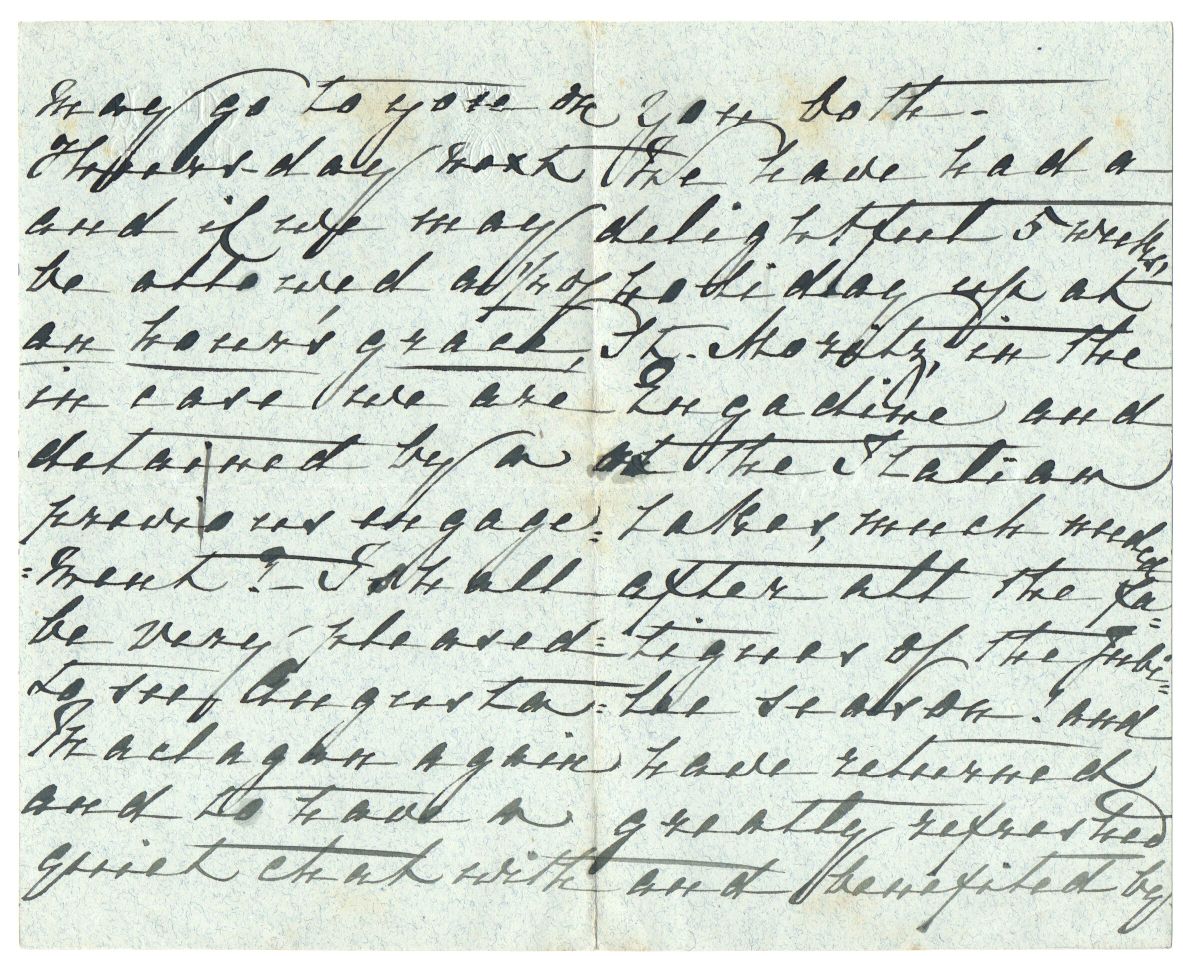 may go to you on
Thursday next
and if we may
be allowed a 1/4 of
an hour's grace,
in case we are
detained by a
previous engage=
=ment? - I shall
be very pleased
to see Augusta
Maclagan again
and to have a
quiet chat with
you both -
We have had a
delightful 5 weeks'
holiday up at
St. Moritz, in the
Engadine and
at the Italian
Lakes, much needed
after all the fa=
=tigues of the Jubi=
=lee season! and
have returned
greatly refreshed
and benefited by